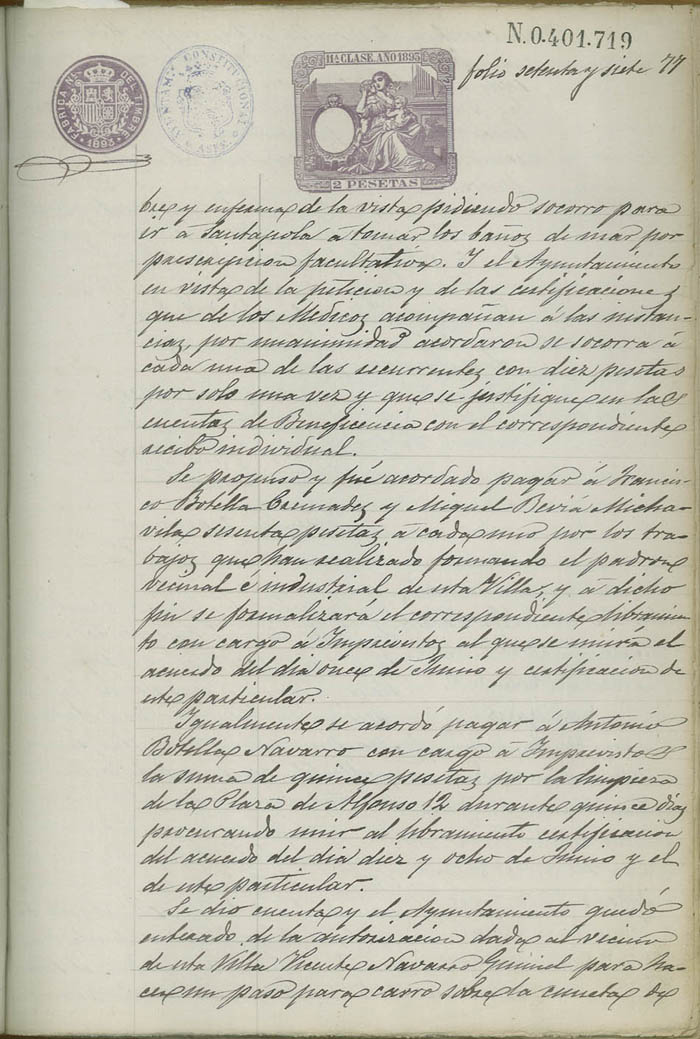 N.0.401.719
11ª CLASE. AÑO 1893
folio setenta y siete 77
FABRICA NAL DEL TIMBRE
1893
AYUNTAMTO CONSTITUCIONAL
ASPE
2 PESETAS
bre y enferma de la vista pidiendo socorro para
ir á Santapola á tomar los baños de mar por
prescripcion facultativa. Y el Ayuntamiento
en vista de la peticion y de las certificaciones
que de los Médicos acompañan á las instan-
cias, por unanimidad acordaron se socorra á
cada una de las recurrentes con diez pesetas
por solo una vez y que se justifique en las
cuentas de Beneficencia con el correspondiente
recibo individual.
Se propuso y fué acordado pagar á Francis-
co Botella Cremades y Miguel Beviá Micha-
vila sesenta pesetas á cada uno por los tra-
bajos que han realizado formando el padron
vecinal é industrial de esta Villa, y á dicho
fin se formalizará el correspondiente libramien-
to con cargo á Imprevistos al que se unira el
acuerdo del dia once de Junio y certificacion de
este particular.
Igualmente se acordó pagar á Antonio
Botella Navarro con cargo á Imprevistos
la suma de quince pesetas por la limpieza
de la Plaza de Alfonso 12 durante quince dias
procurando unir al libramiento certificacion
del acuerdo del dia diez y ocho de Junio y el
de este particular.
Se dio cuenta y el Ayuntamiento quedó
enterado de la autorizacion dada al vecino
de esta Villa Vicente Navarro para ha-
cer un paso para carro sobre la cuneta de